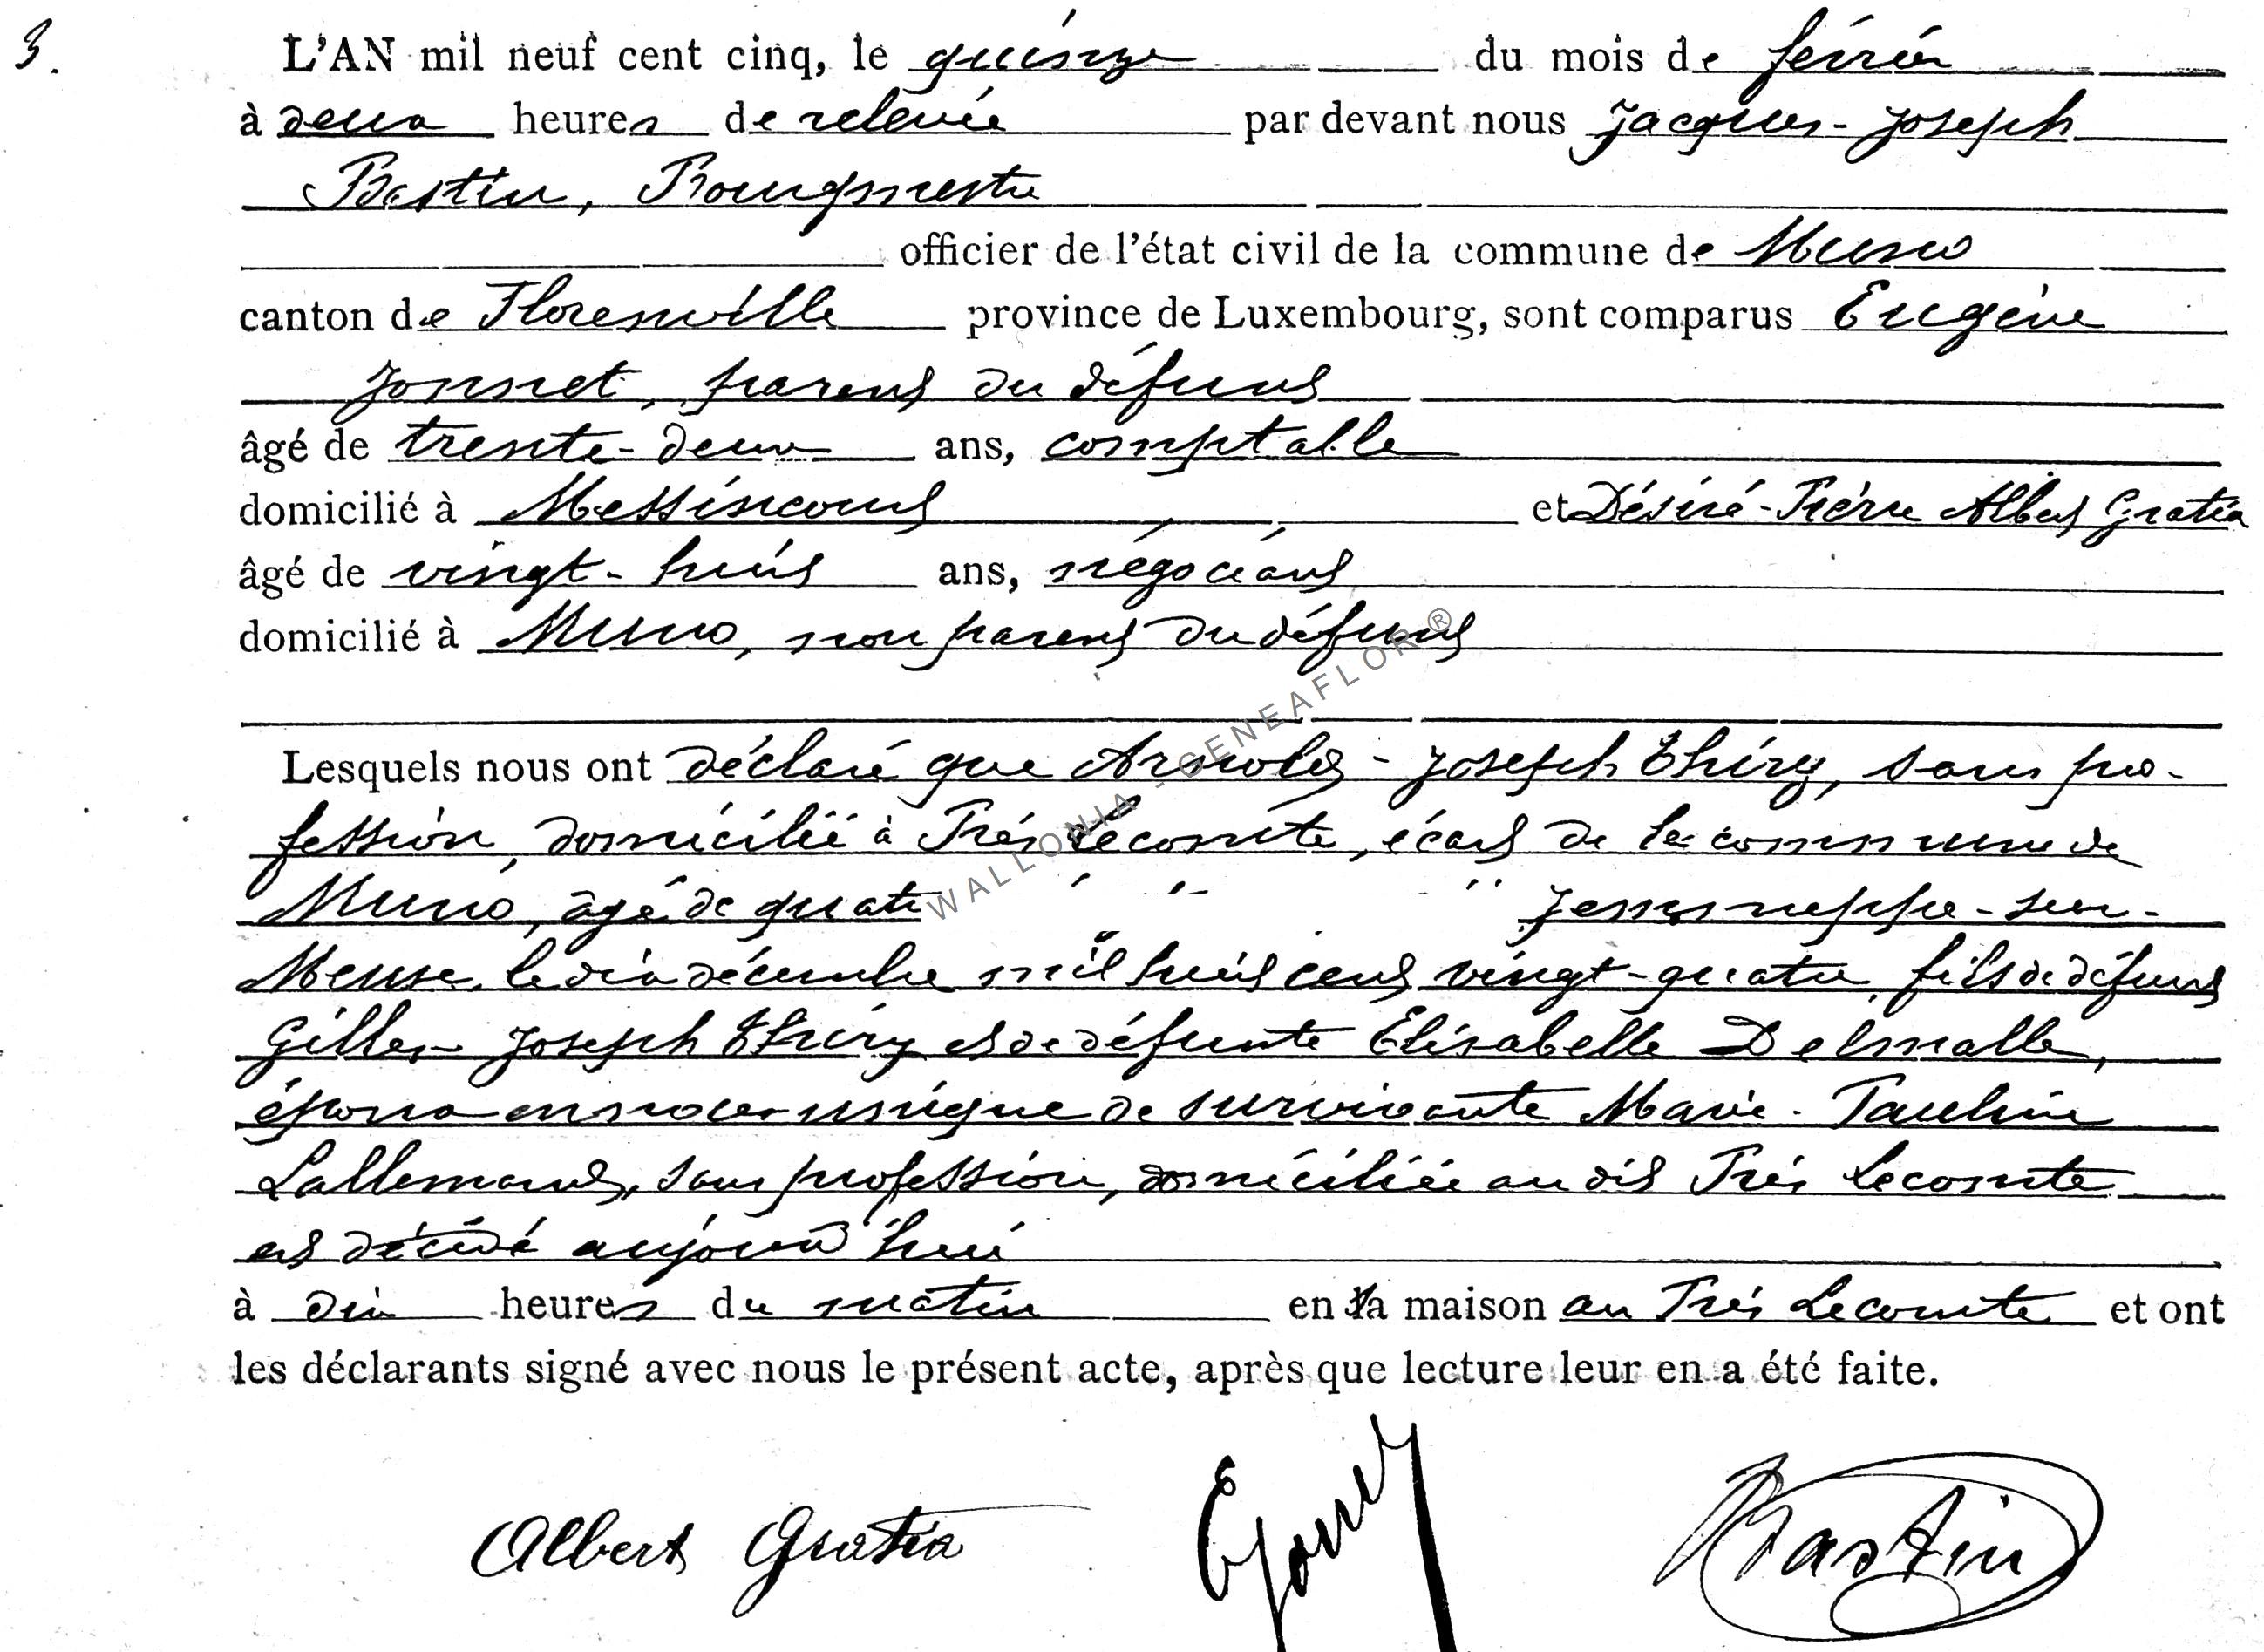 3.
L'AN mil neuf cent cinq, le quinze du mois de février
à deux heures de relevée par devant nous Jacques-Joseph
Bastin, Bourgmestre
officier de l'état civil de la commune de Muno
canton de Florenville province de Luxembourg, sont comparus Eugène
Jonnet, parent du défunt
âgé de trente-deux ans, comptable
domicilié à Messincourt et Désiré-Pierre Albert Gratia
âgé de vingt-huit ans, négociant
domicilié à Muno, non parent du défunt
Lesquels nous ont déclaré que Arnold-Joseph Thiry, sans pro-
fession, domicilié à Prés Lecomte, écart de la commune de
Muno, âgé de quatr Jemmeppe-sur-
Meuse, le dix décembre mil huit cent vingt-quatre, fils de défunt
Gilles-Joseph Thiry et de défunte Elisabelle Delmalle,
époux en noces unique de survivante Marie-Pauline
Lallemand, sans profession, domiciliée au dit Prés Lecomte
est décédé aujourd'hui
à dix heures du matin en sa maison au Prés Lecomte et ont
les déclarants signé avec nous le présent acte, après que lecture leur en a été faite.
Albert Gratia EJonnet Bastin
WALLONIA - GENEAFLOR ®